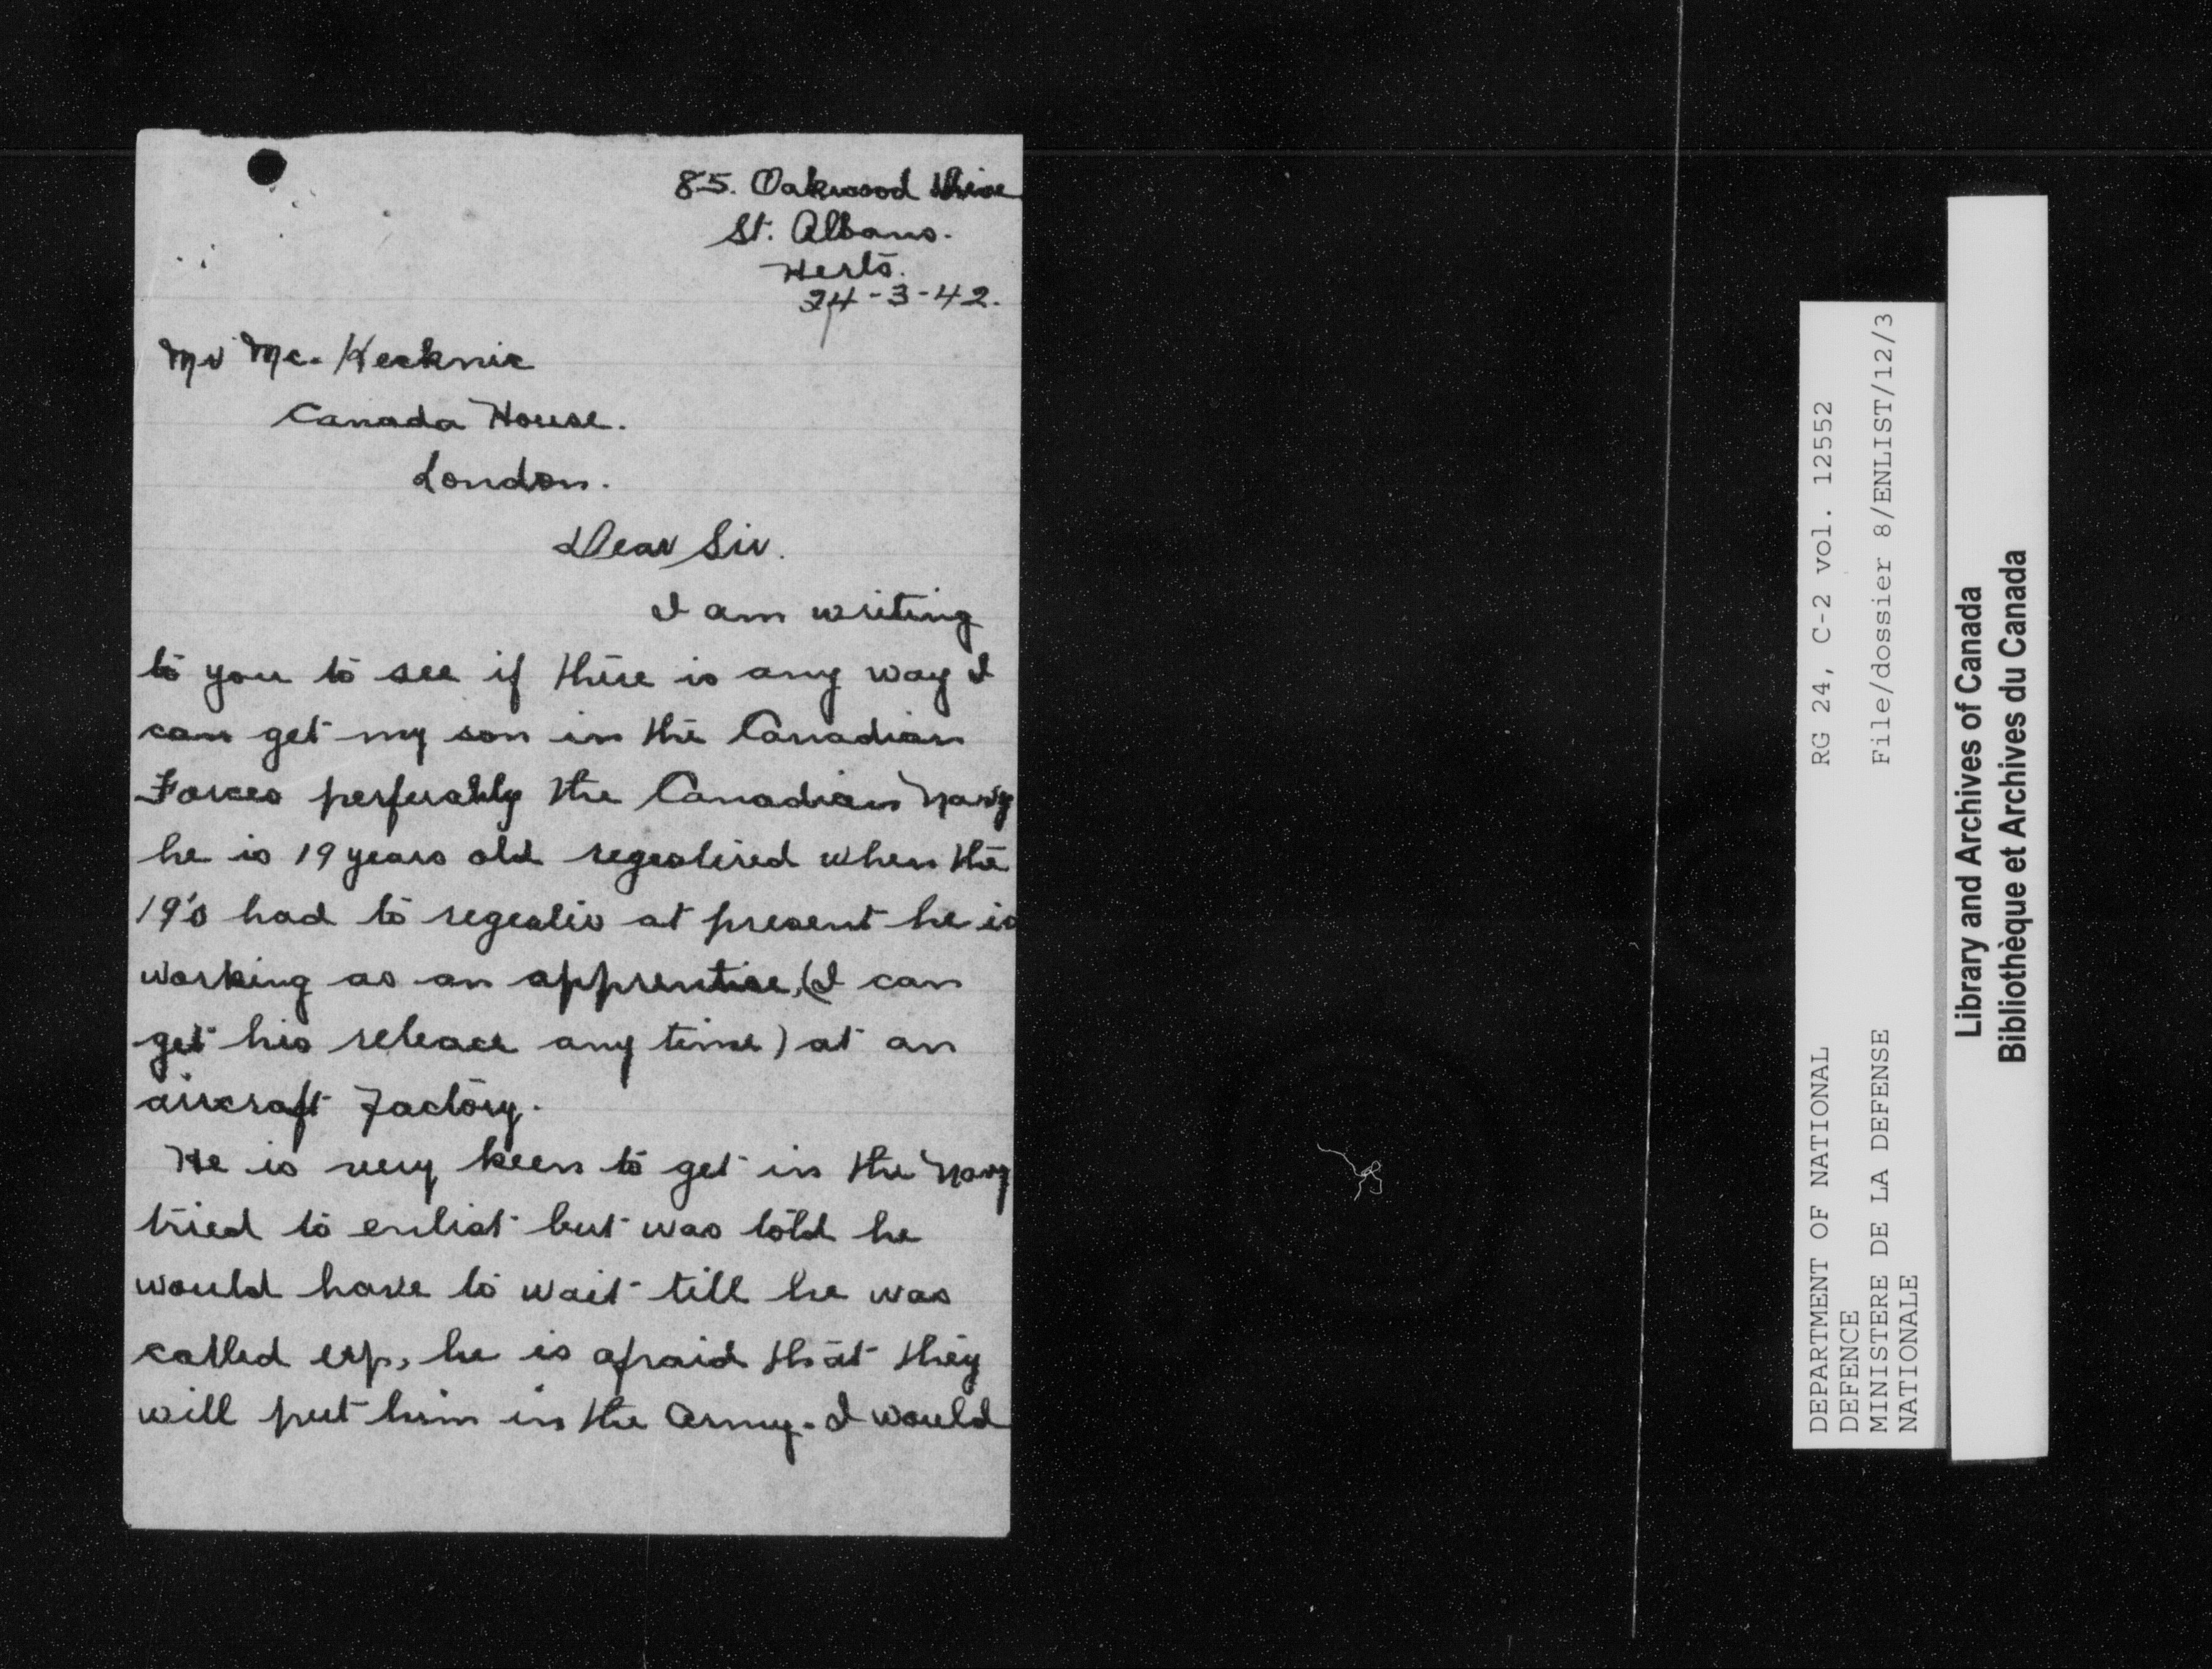 85. Oakwood Drive
St. Albans.
Herts.
24-3-42.
Mr Mc. Kecknie
Canada House.
London.
Dear Sir.
I am writing
to you to see if there is any way I
can get my son in the Canadian
Forces perferably the Canadian Navy
he is 19 years old regestired when the
19's had to regestir at present he is
working as an apprentise, (I can
get his releace any time) at an
aircraft Factory.
He is very keen to get in the Navy
tried to enlist but was told he
would have to wait till he was
called up, he is afraid that they
will put him in the Army. I would
DEPARTMENT OF NATIONAL
DEFENCE
MINISTERE DE LA DEFENSE
NATIONALE
RG 24, C-2 vol. 12552
File/dossier 8/ENLIST/12/3
Library and Archives of Canada
Bibliothèque et Archives du Canada